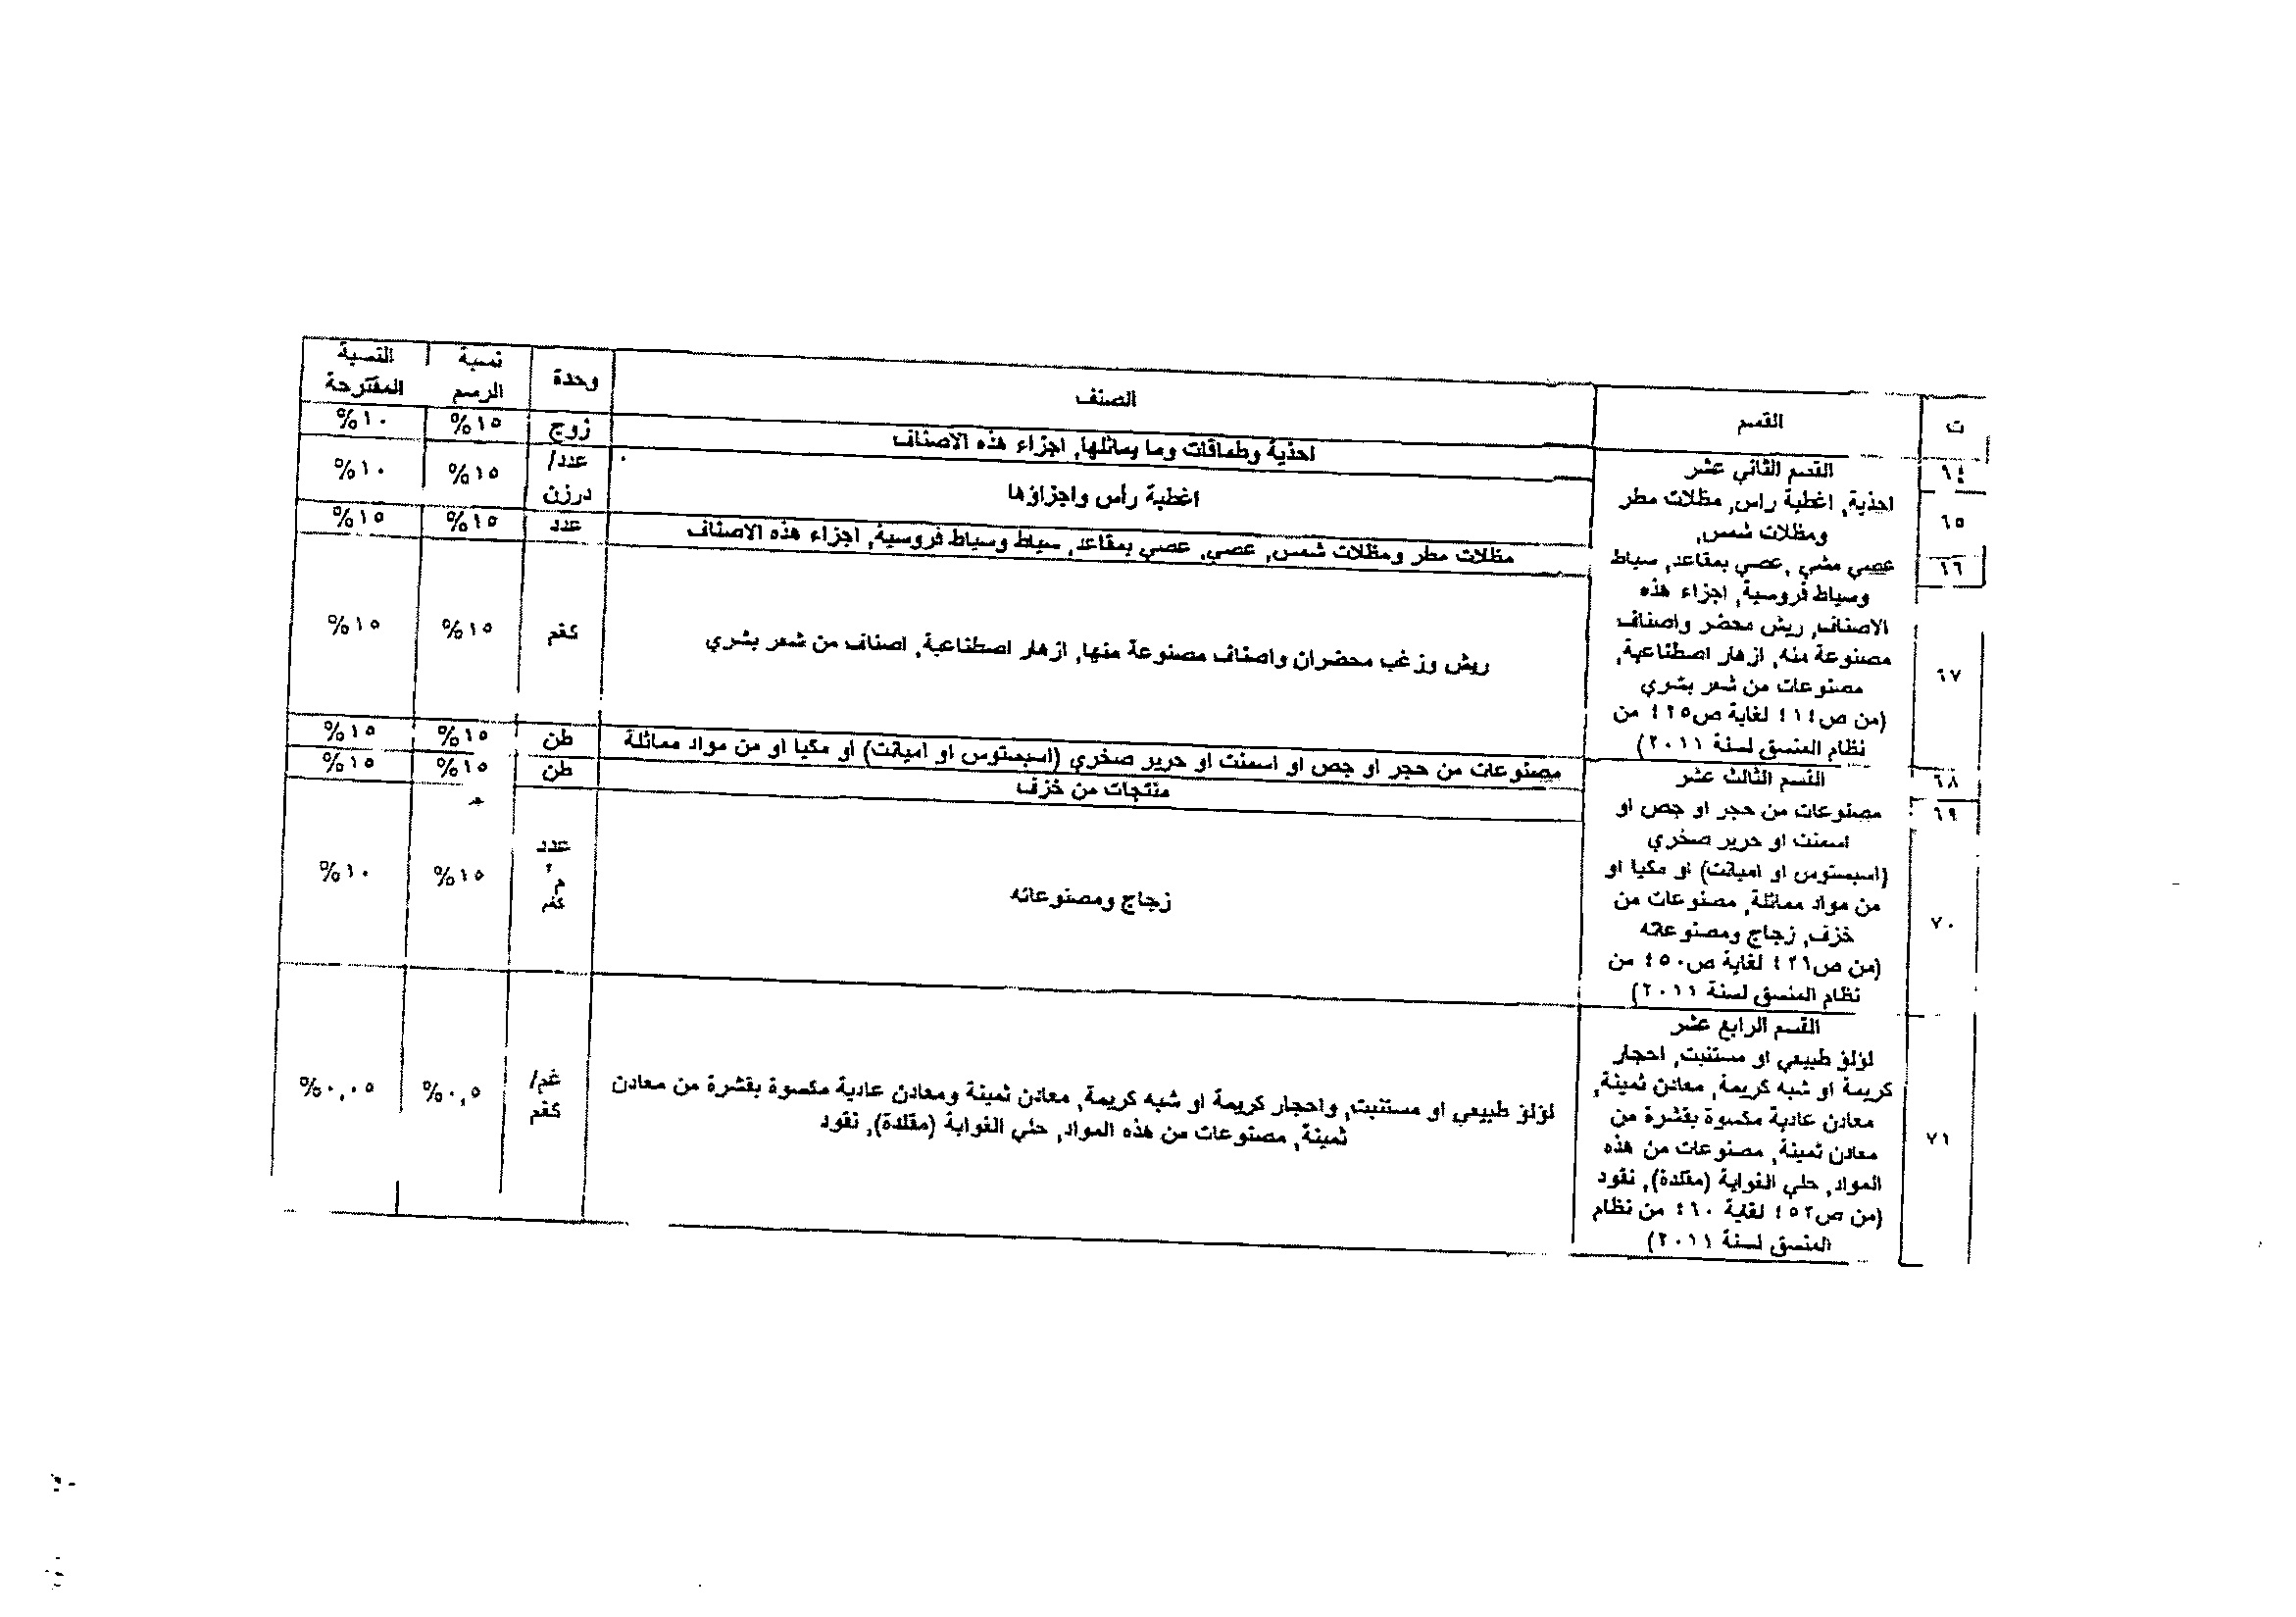 ت القسم الصنف وحدة نسبة الرسم النسبة المقترحة
٦٤ القسم الثاني عشر
احذية, اغطية راس, مظلات مطر
ومظلات شمس,
عصي مشي ,عصي بمقاعد, سياط
وسياط فروسية, اجزاء هذه
الاصناف, ريش محضر واصناف
مصنوعة منه, ازهار اصطناعية,
مصنوعات من شعر بشري
(من ص٤١٤ لغاية ص٤٢٥ من
نظام المنسق لسنة ٢٠١١)
احذية وطماقات وما يماثلها, اجزاء هذه الاصناف زوج %١٥ %١٠
٦٥ اغطية رأس واجزاؤها عدد/ درزن %١٥ %١٠
٦٦ مظلات مطر ومظلات شمس, عصي, عصي بمقاعد, سياط وسياط فروسية, اجزاء هذه الاصناف عدد %١٥ %١٥
٦٧ ريش وزغب محضران واصناف مصنوعة منها, ازهار اصطناعية, اصناف من شعر بشري كغم %١٥ %١٥
٦٨ القسم الثالث عشر
مصنوعات من حجر او جص او
اسمنت او حرير صخري
(اسبستوس او اميانت) او مكيا او
من مواد مماثلة, مصنوعات من
خزف, زجاج ومصنوعاته
(من ص٤٢٦ لغاية ص٤٥٠ من
نظام المنسق لسنة ٢٠١١)
مصنوعات من حجر او جص او اسمنت او حرير صخري (اسبستوس او اميانت) او مكيا او من مواد مماثلة طن %١٥ %١٥
٦٩ منتجات من خزف طن %١٥ %١٥
٧٠ زجاج ومصنوعاته عدد م٢ كغم %١٥ %١٠
٧١ القسم الرابع عشر
لؤلؤ طبيعي او مستنبت, احجار
كريمة او شبه كريمة, معادن ثمينة,
معادن عادية مكسوة بقشرة من
معادن ثمينة, مصنوعات من هذه
المواد, حلي الغواية (مقلدة), نقود
(من ص٤٥٢ لغاية ٤٦٠ من نظام
المنسق لسنة ٢٠١١)
لؤلؤ طبيعي او مستنبت, واحجار كريمة او شبه كريمة, معادن ثمينة ومعادن عادية مكسوة بقشرة من معادن
ثمينة, مصنوعات من هذه المواد, حلي الغواية (مقلدة), نقود
غم/ كغم %٠,٥ %٠,٠٥